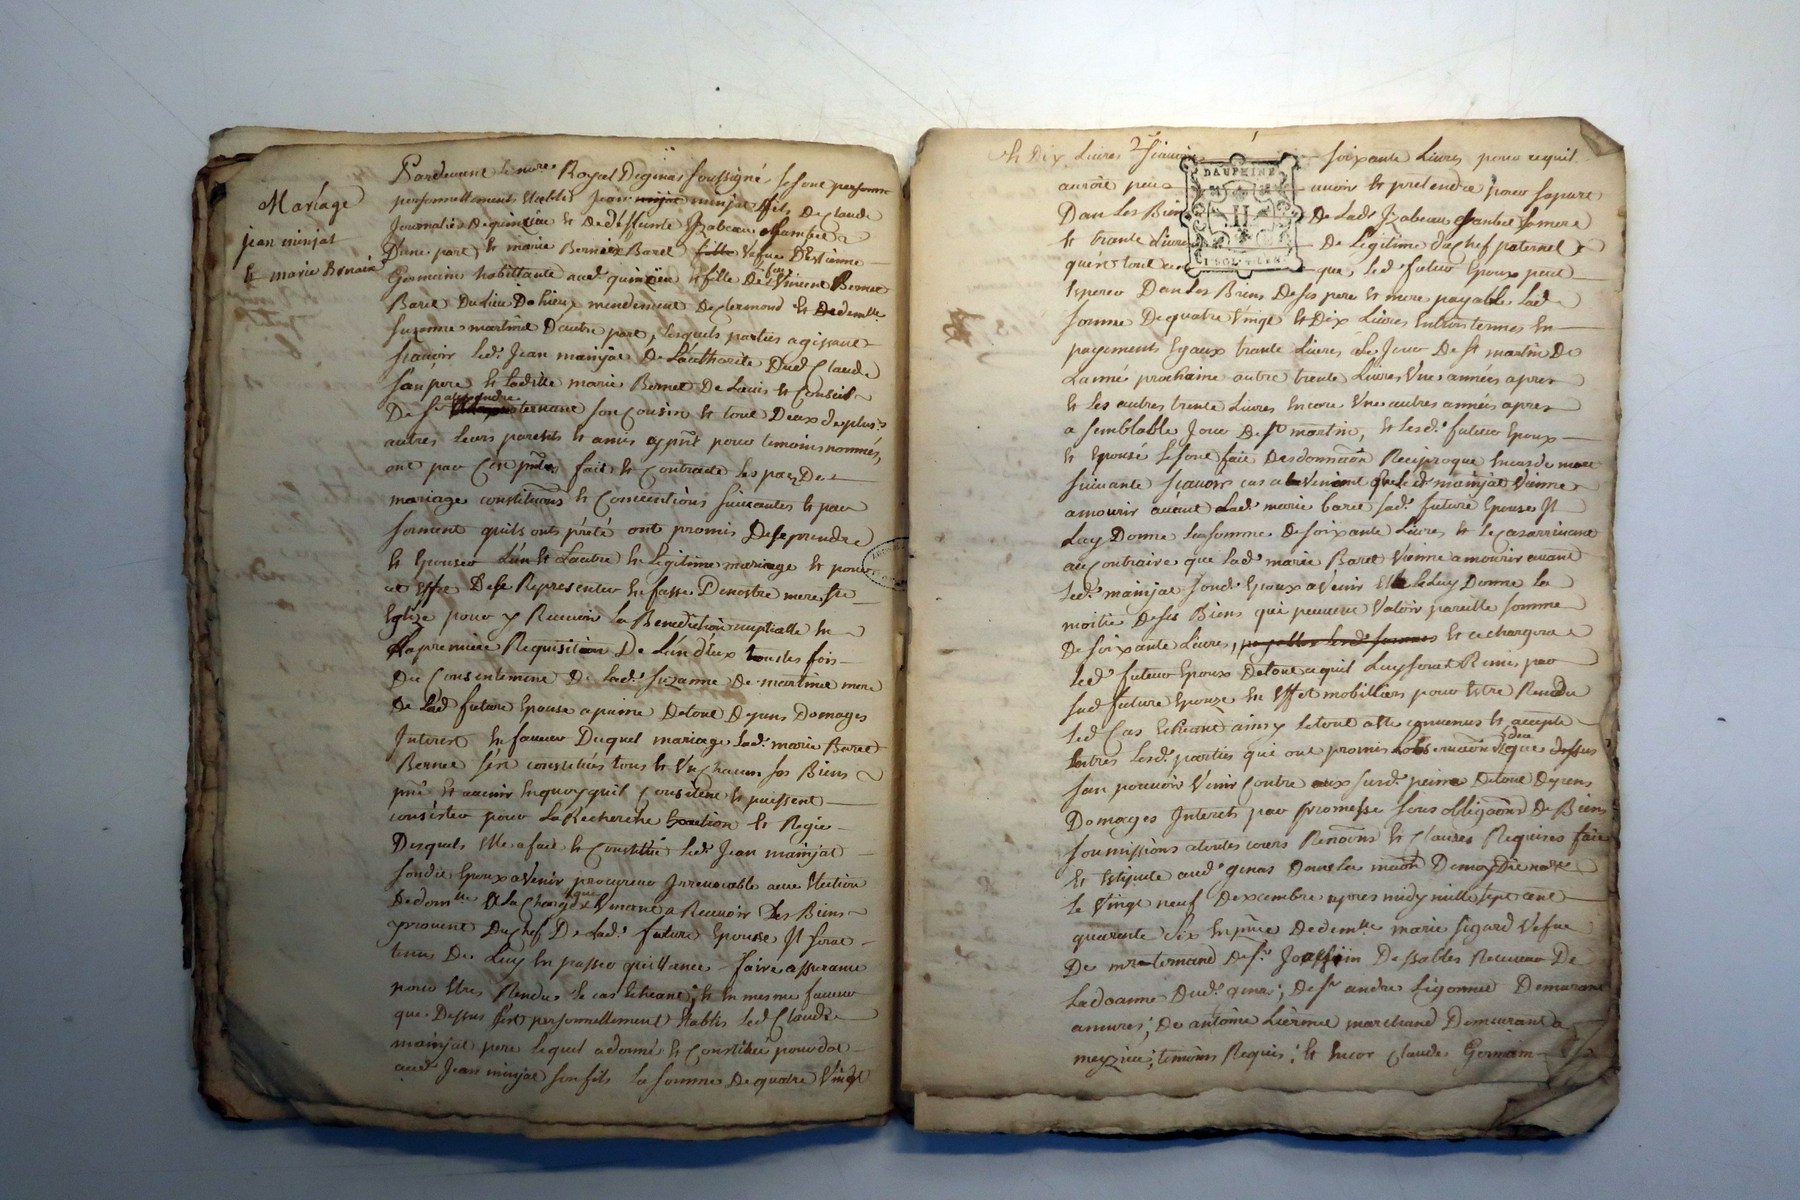 Mariage
jean minjat
et marie Bernair
Pardevant le nore Royal De genas soussigné, se sont personne
personnellement etablis Jean minjat minjat fils De Claude
Journalier De quincieu et De deffunte Izabeau Chambet
D'une part, et marie Bernet Baret fille Vefve D'Estienne
Germain habittante aud. quincieu et fille De feu Vincent Bernet
Baret Du lieu Dohieu mendement De Clermond et De demlle
Suzanne martine D'autre part, Lesquels parties agissant
sçauoir led. Jean mainjat De L'authorite Dud. Claude
son pere et Laditte marie Bernet De Lauis et Conseil
De sr alexandre ternant son Cousin et tout Deux de plusrs
autres leurs parents et amis appnt pour temoins nommés,
ont par Ces pntes fait et Contracté les paches De
mariage constitutions et Conuentions suiuantes et par
serment quils ont pretté ont promis De se prendre
et Epouser L'un et L'autre En legitime mariage et pour
cet Effet De se Representer En fasse De nostre mere ste
Eglize pour y Receuoir la Benediction nuptialle En
La premiere Requisition De L'un d'Eux toutes fois
Du Consentement De lad. Suzanne De martine mere
De Lad. future Epouse a peine De tout Depens Domages
Interest En faueur Duquel mariage Lad. marie Baret
Bernet s'est constitués tous et Un Chacun ses Biens
pnt et auenir En quoy quil Consistent et puissent
consister pour La Recherche Exaction et Regie
Desquels Elle a fait et Constitué led. Jean mainjat
son dit Epoux a Venir procureur Irreuocable auec Election
De domlle et La Charge que Venant a Receuoir Les Biens
prouent Du Chef De Lad. future Epouse Il serat
tenu De Luy En passer quittance faire assurance
pour Etre Rendus le cas Echeant; Et En mesme faueur
que Dessus s'est personnellement Etablis Led. Claude
mainjat pere lequel a donné et Constitué pour dot
aud. Jean minjat son fils la somme De quatre Vingt
Et Dix Liures sçauoir soixante Liures pour ce quil
auroit peu auoir et pretendre pour sa part
Dan Les Bien De Lade Izabeau Chambet sa mere
et trante Liures De Legitime du Chef paternel
qu'est tout ce que led. futur Epoux peut
Esperer Dan Les Biens De ses pere et mere payable Lad.
somme De quatre Vingt et Dix Liures En trois termes En
payements Egaux trante Liures a le Jour De st martin De
L'anné prochaine autre trente Liures Une années apres
et Les autres trente Liures Encore Une autres années apres
a semblable Jour De st martin, et Lesd. futur Epoux
et Epouse se sont fait Des donnaon Reciproque En cas de mort
suiuante sçauoir cas auenant que led. mainjat Vienne
a mourir auant Lad. marie Baret sad. future Epouse Il
Luy Donne la somme De soixante Liures et le cas arriuant
au Contraire que Lad. marie Baret Vienne a mourir auant
Led. mainjat sond. Epoux a Venir Elle Luy Donne la
moitié De ses Biens qui peuuent Valoir pareille somme
De soixante Liures, payables lesd. sommes et ce chargera
Led. futur Epoux De tout ce quil Luy serat Remis par
sad. future Epouse En Effet mobilliers pour Estre Rendu
Led. Cas Echeant ainsy le tout a Eté conuenus et accepté
Entres Lesd. parties qui ont promis Lobseruaon de ce que dessus
san pouuoir Venir Contre aux susd. peine De tout Depens
Domages Interets par promesse sous obligaons De Biens
soumissions a toutes cours Renons et Clauses Requises fait
Et Estipulé aud. genas Dans La maon De moy Dit nore
Le Vingt neuf Dexcembre apres midy mille sept cent
quarante six En pnce De demlle marie sigard Vefue
De mr ternand De sr Des sables Receueur De
La doanne Dud. genas; De sr andre Ligonnet Demurant
a mures; De antoine Liermet marchand Demeurant a
meyzieu; temoins Requis; Et Encor Claude Germain
DAUPHINE
H